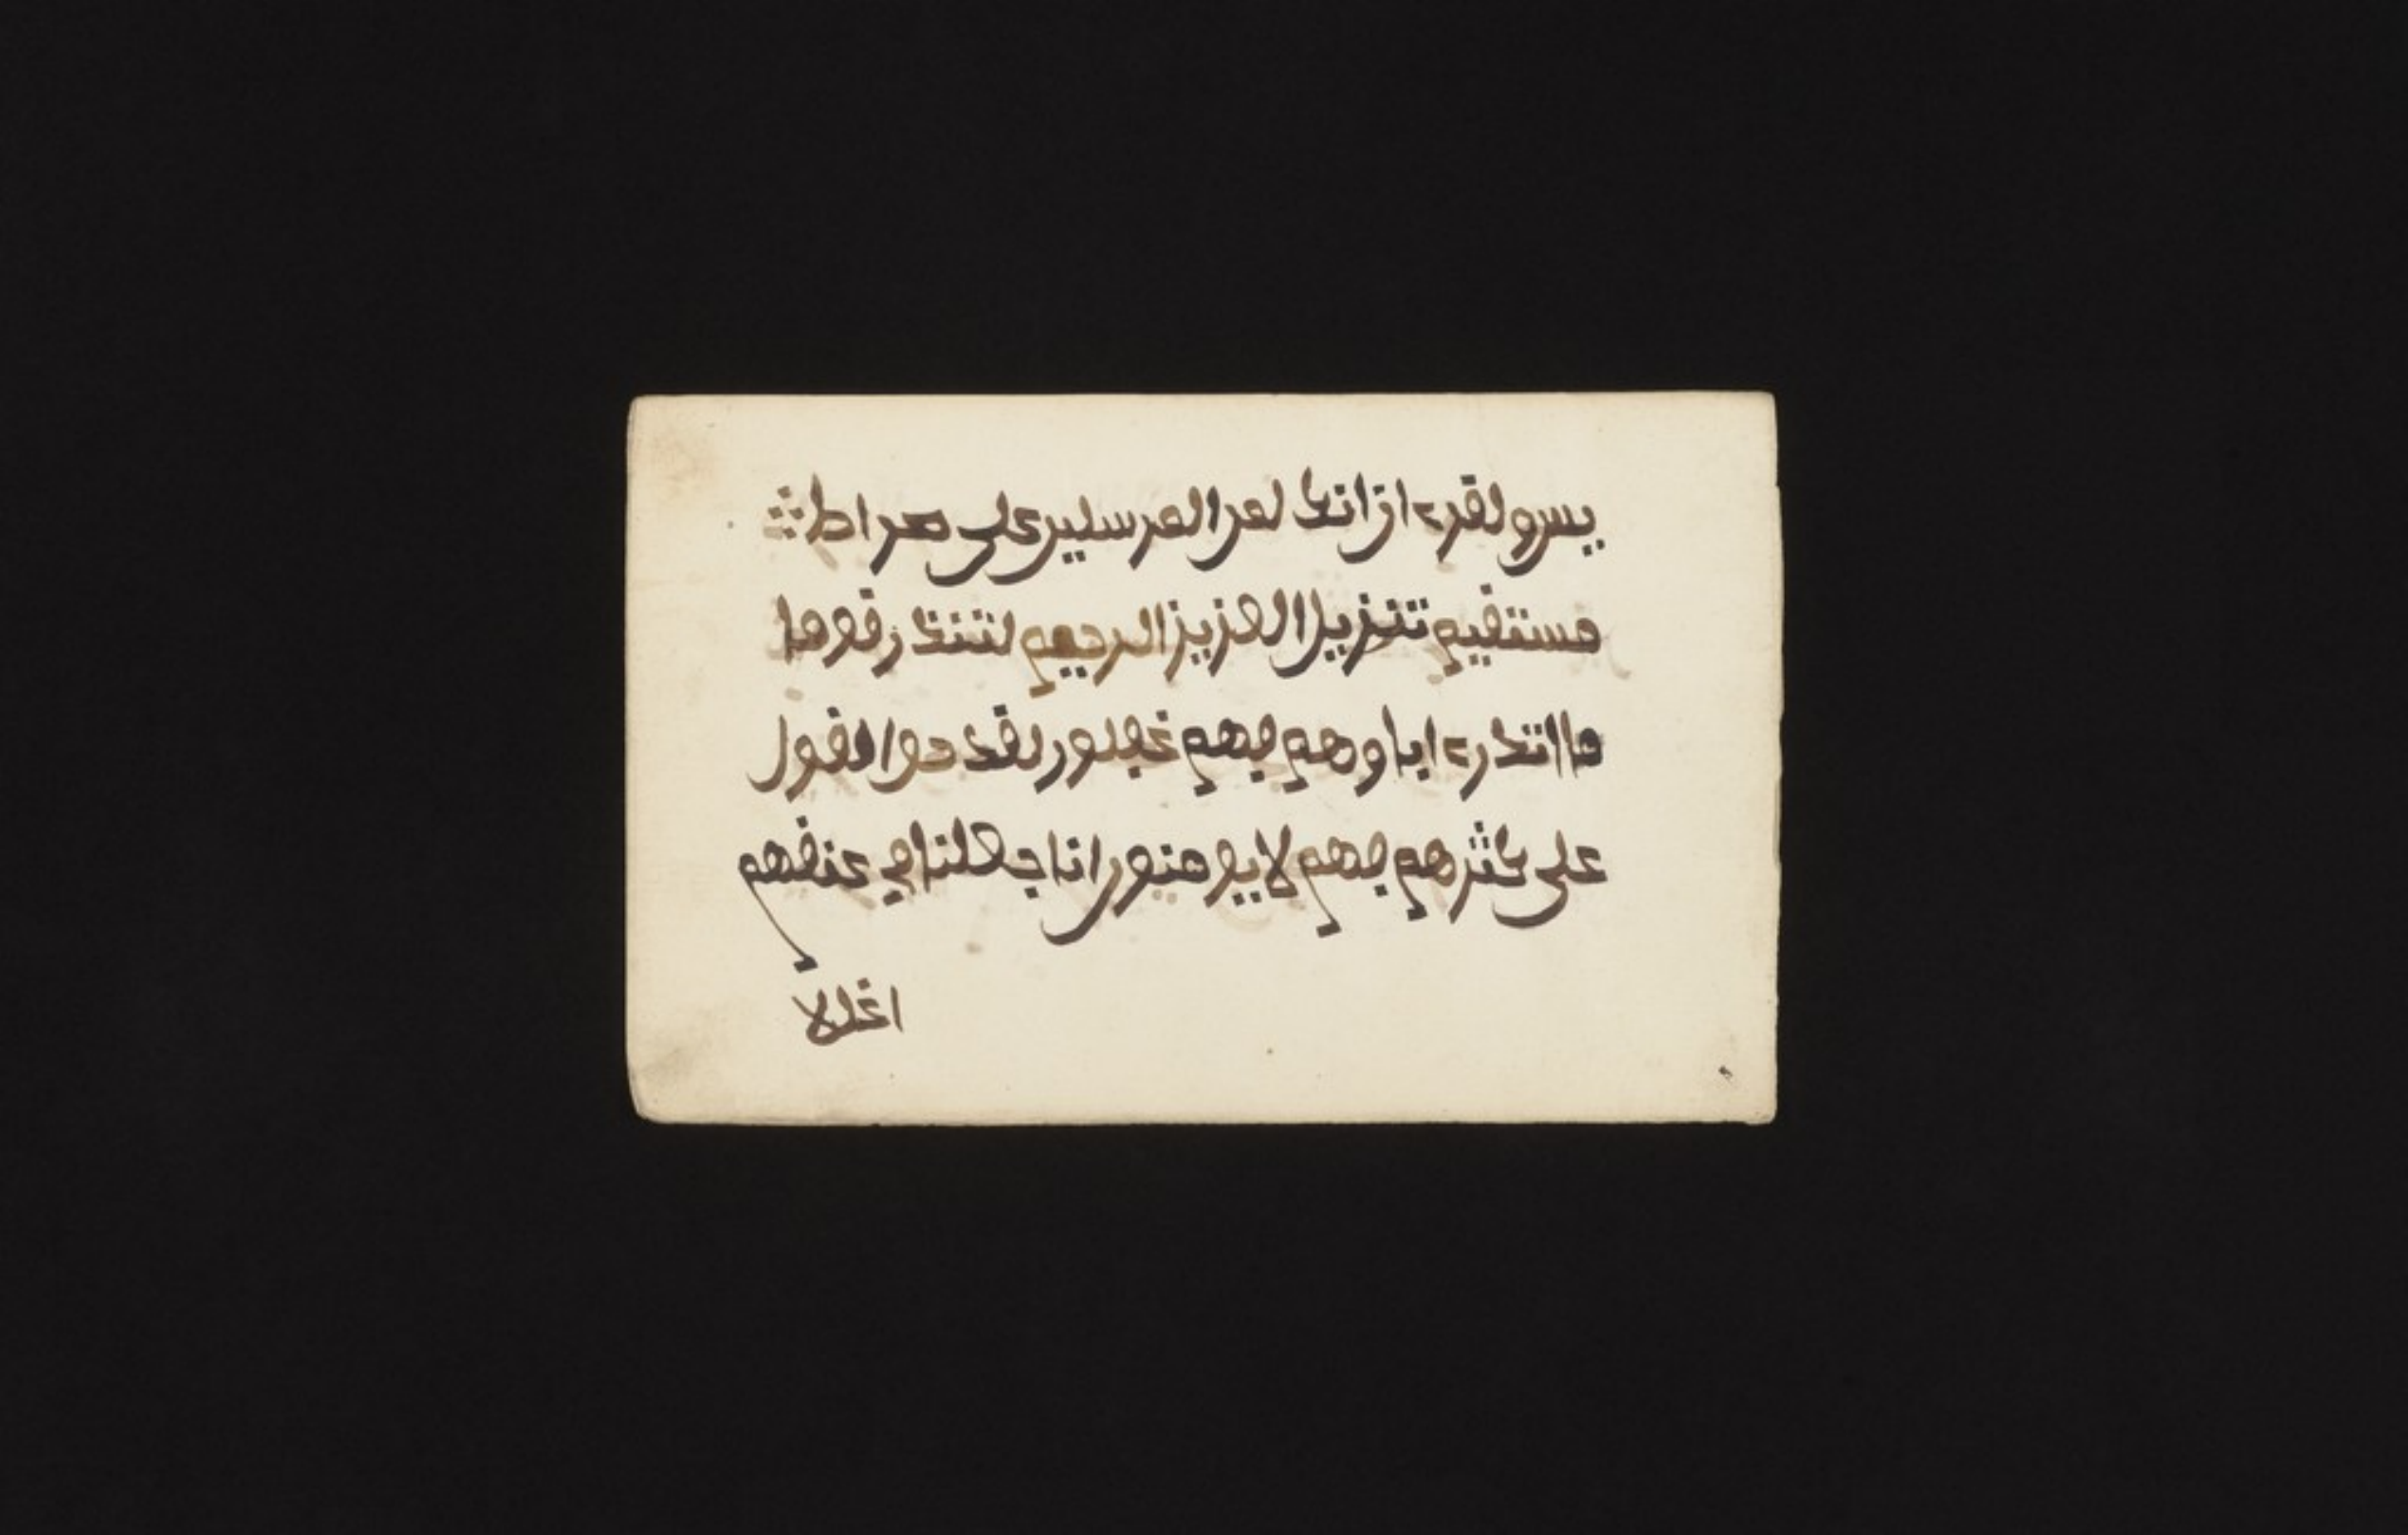 يس ولقرءان انك لمن المرسلين على صراط
مستقيم تنزيل العزيز الرحيم لتنذر قوما
ما انذرء اباوهم فهم غفلون لقد حق القول
على كثرهم فهم لا يومنون انا جعلنا في عنقهم
اغللا